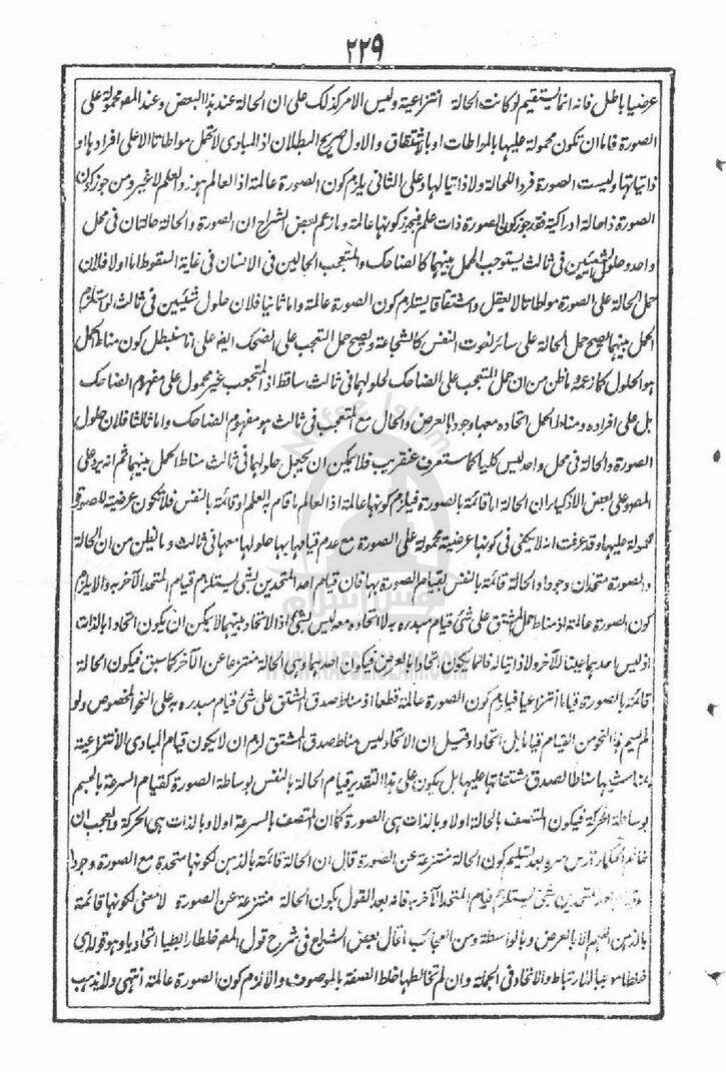 ٢٢٩
عرضيا باطل فانه انما يستقيم لو كانت الحالة انتزاعية وليس الامر كذلك على ان الحالة عند هذا البعض وعند المص محمولة على
الصورة فاما ان تكون محمولة عليها بالمواطات او بالاشتقاق والاول صريح البطلان اذ المبادى لا تحمل مواطاتا الا على افرادها او
ذاتياتها وليست الصورة فردا للحالة ولا ذاتيا لها وعلى الثانى يلزم كون الصورة عالمة اذ العالم هو ذو العلم لا غير ومن جوز كون
الصورة ذا حالة ادراكية فقد جوز كون الصورة ذات علم فيجوز كونها عالمة وما زعم بعض الشراح ان الصورة والحالة حالتان فى محل
واحد وحلول الشيئين فى ثالث يستوجب الحمل بينهما كالضاحك والمتعجب الحالين فى الانسان فى غاية السقوط اما اولا فلان
حمل الحالة على الصورة مواطاتا لا يعقل واشتقاقا يستلزم كون الصورة عالمة واما ثانيا فلان حلول شيئين فى ثالث لو استلزم
الحمل بينهما يصح حمل الحالة على سائر نعوت النفس كالشجاعة ويصح حمل التعجب على الضحك ايض على انا سنبطل كون مناط الحمل
هو الحلول كما زعمه وما ظن من ان حمل المتعجب على الضاحك لحلولهما فى ثالث ساقط اذ المتعجب غير محمول على مفهوم الضاحك
بل على افراده ومناط الحمل اتحاده معها وجودا بالعرض والحال مع المتعجب فى ثالث هو مفهوم الضاحك واما ثالثا فلان حلول
الصورة والحالة فى محل واحد ليس كليا كما ستعرف عنقريب فلا يمكن ان يجعل حلولهما فى ثالث مناط الحمل بينهما ثم انه يرد على
المص وعلى بعض الاذكياء ان الحالة اما قائمة بالصورة فيلزم كونها عالمة اذ العالم ما قام به العلم او قائمة بالنفس فلا تكون عرضية للصورة
محمولة عليها وقد عرفت انه لا يكفى فى كونها عرضية محمولة على الصورة مع عدم قيامها بها حلولها معها فى ثالث وما يظن من ان الحالة
والصورة متحدتان وجودا والحالة قائمة بالنفس بقيام الصورة بها فان قيام احد المتحدين بشئ يستلزم قيام المتحد الآخر به والا يلزم
كون الصورة عالمة اذ مناط حمل المشتق على شئ قيام مبدءه به لا اتحاده معه ليس بشئ اذ الاتحاد بينهما لا يمكن ان يكون اتحادا بالذات
اذ ليس احدهما عينا للآخر ولا ذاتيا له فانما يكون اتحادا بالعرض فيكون احدهما وهى الحالة منتزعا عن الآخر كما سبق فيكون الحالة
قائمة بالصورة قياما انتزاعيا فيلزم كون الصورة عالمة قطعا اذ مناط صدق المشتق على شئ قيام مبدءه به على النحو المخصوص ولو
لم يسم هذا النحو من القيام قياما بل اتحادا وقيل ان الاتحاد ليس مناط صدق المشتق لزم ان لا يكون قيام المبادى الانتزاعية
بمناشئها مناطا لصدق مشتقاتها عليها بل يكون على هذا التقدير قيام الحالة بالنفس بوساطة الصورة كقيام السرعة بالجسم
بوساطة الحركة فيكون المتصف بالحالة اولا وبالذات هى الصورة كما ان المتصف بالسرعة اولا وبالذات هى الحركة والعجب ان
خاتم الحكماء قدس سره بعد تسليم كون الحالة منتزعة عن الصورة قال ان الحالة قائمة بالذهن لكونها متحدة مع الصورة وجودا
وقيام احد المتحدين بشئ يستلزم قيام المتحد الآخر به فانه بعد القول بكون الحالة منتزعة عن الصورة لا معنى لكونها قائمة
بالذهن اللهم الا بالعرض وبالواسطة ومن العجائب ما قال بعض الشراح فى شرح قول المص خلطا رابطيا اتحاديا وهو قوله اى
خلطا موجبا للارتباط والاتحاد فى الجملة وان لم تخالطها خلط الصفة بالموصوف والا لزم كون الصورة عالمة انتهى ولا يذهب
WWW.NAFSEISLAM.COM